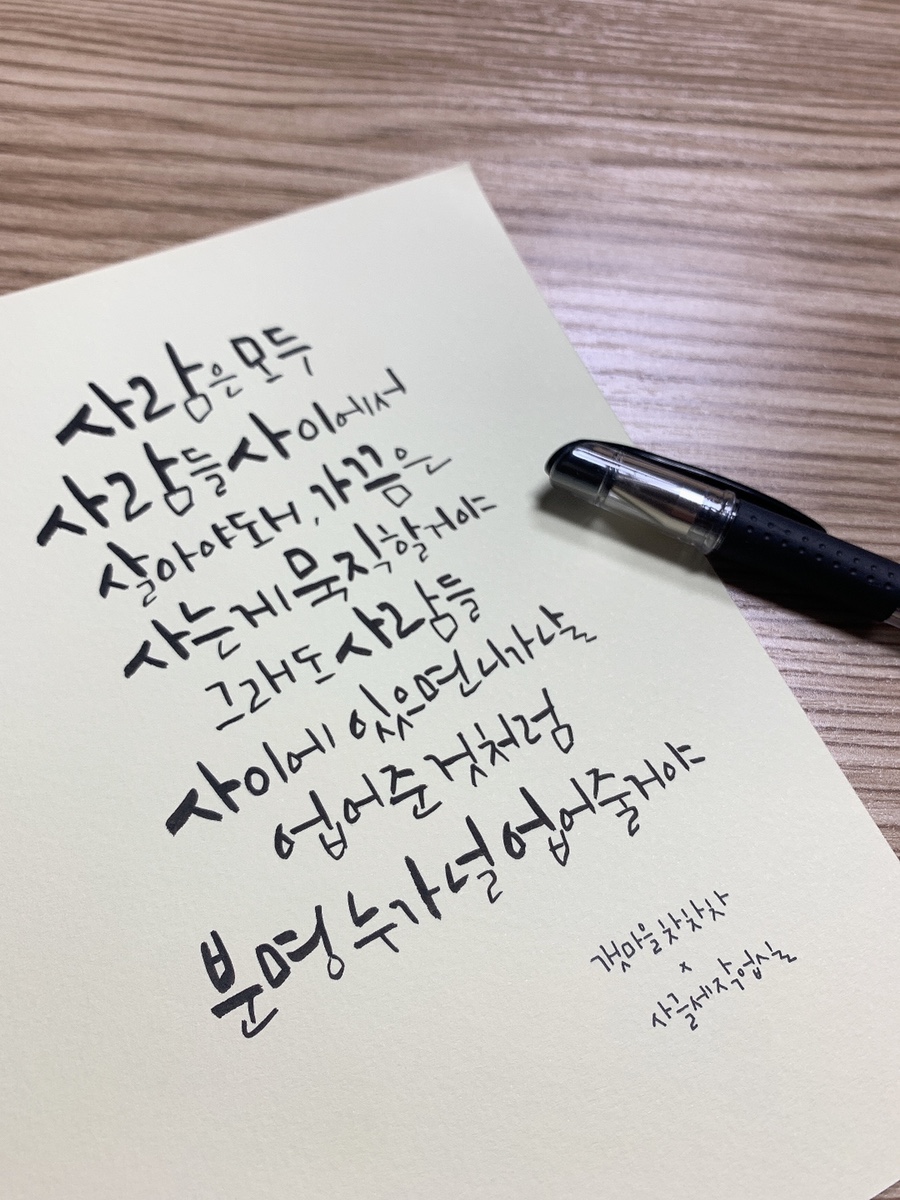 사람은 모두
사람들 사이에서
살아야 돼, 가끔은
사는게 묵직할거야
그래도 사람들
사이에 있으면 니가 나를
업어준 것처럼
분명 누가 널 업어줄거야
갯마을 차차차
x
사글세작업실